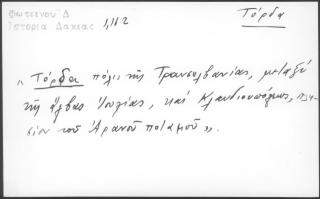 Φωτεινού Δ
Ιστορία Δακίας 1,162
Τόρδα
"Τόρδα πόλις της Τρανσυλβανίας, μεταξύ
της Άλβας Ιουλίας, και Κλαυδιουπόλεως, πλη-
σίον του Αρανού ποταμού".